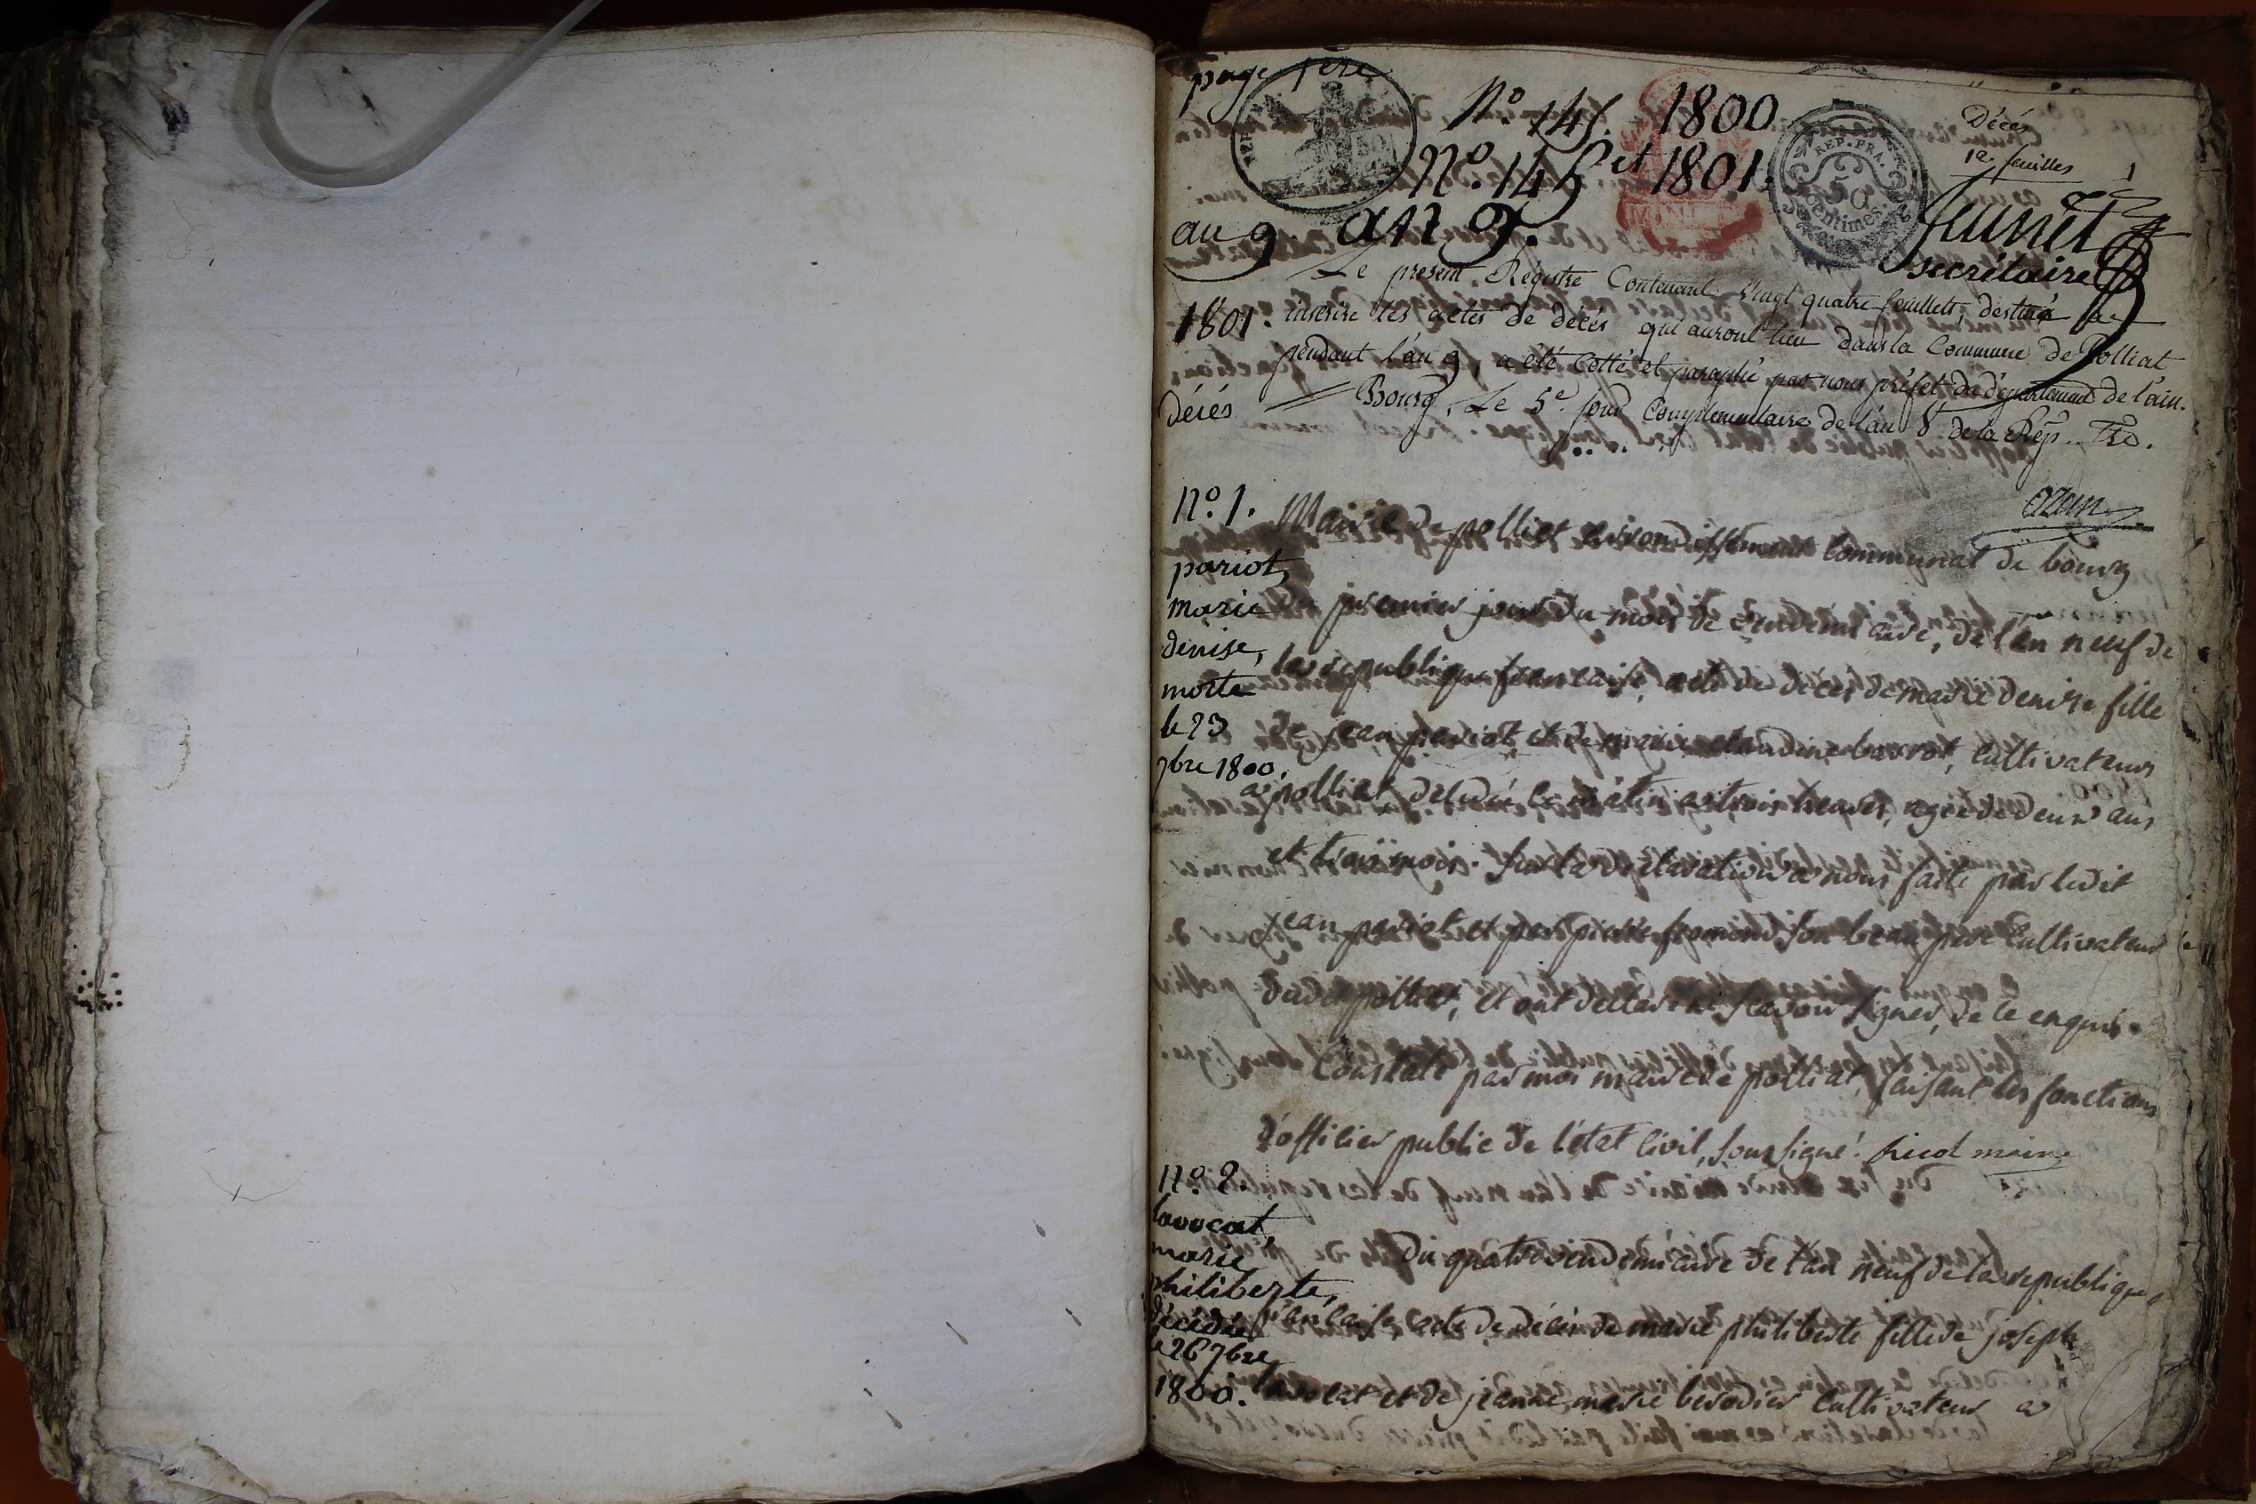 page 1ere
N° 145. 1800
N°. 145 et 1801.
an 9 an 9.
REP. FRA.
50
Centimes
Décès
12 feuilles
1
Jeunet
secrétaire
Le present Régistre Contenant Vingt quatre feuillets, destiné a
1801. inscrire les actes de décés qui auront lieu dans la Commune de Polliat
pendant l'an 9, a été Cotté et paraphé par nous préfet du département de l'ain.
Décés Bourg, Le 5e. jour Complémentaire de l'an 8 de la Rép. frse.
ozun
N°. 1. Mairie de polliat arrondissement communal de bourg
pariot,
marie
denise,
morte
le 23
7bre 1800.
du premier jour du mois de vendemiaire, de l'an neuf de
la republique francaise, acte de décés de marie denise fille
de jean pariot, et de marie claudine buvrot, cultivateurs
a polliat, decedée ce matin a trois heures, agée de deux ans
et trois mois. sur la declaration a nous faite par ledit
jean pariot et par pierre froment son beau pere cultivateur
dudit polliat, et ont declaré ne scavoir signer, de ce enquis.
Constaté par moi maire de polliat, faisant les fonctions
d'officier public de l'état civil, soussigné. picol maire
N°. 2.
lavocat,
marie
philiberte,
décédée
le 26 7bre
1800.
du quatre vendemiaire de l'an neuf de la republique
francaise, acte de décés de marie philiberte fille de joseph
lavocat et de jeanne marie berodier cultivateurs a